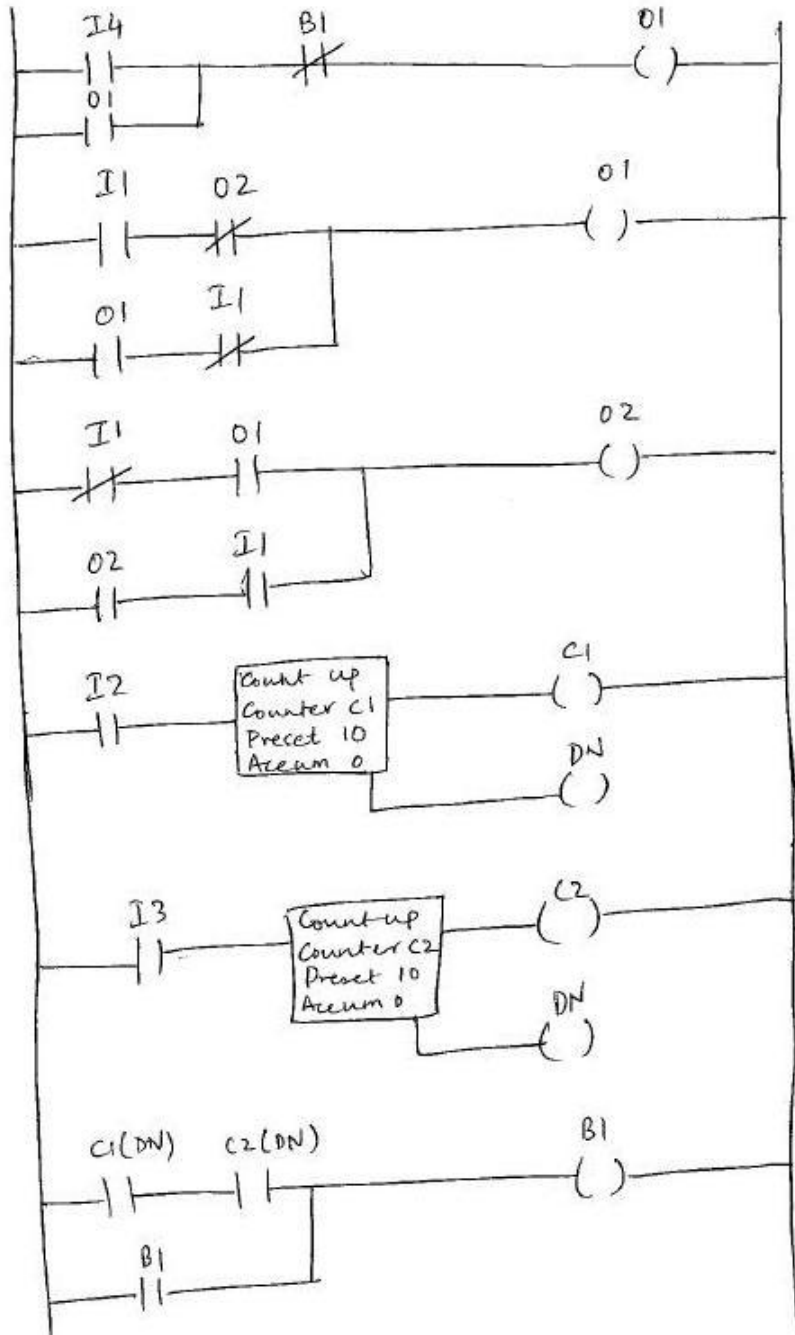 I4 B1 O1
O1
I1 O2 O1
O1 I1
I1 O1 O2
O2 I1
I2
Count up
Counter C1
Preset 10
Accum 0
C1
DN
I3
Count up
Counter C2
Preset 10
Accum 0
C2
DN
C1(DN) C2(DN) B1
B1